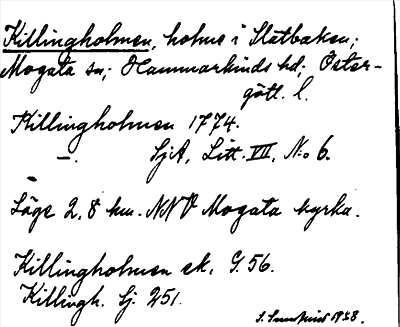 Killingholmen, holme i Slätbaken;
Mogata sn; Hammarkinds hd; Öster-
götl. l.
Killingholmen 1774.
–. SjA, Litt. VII, No 6.
Läge 2,8 km. NNV Mogata kyrka.
Killingholmen ek. G. 56.
Killingh. Sj. 251.
1938.